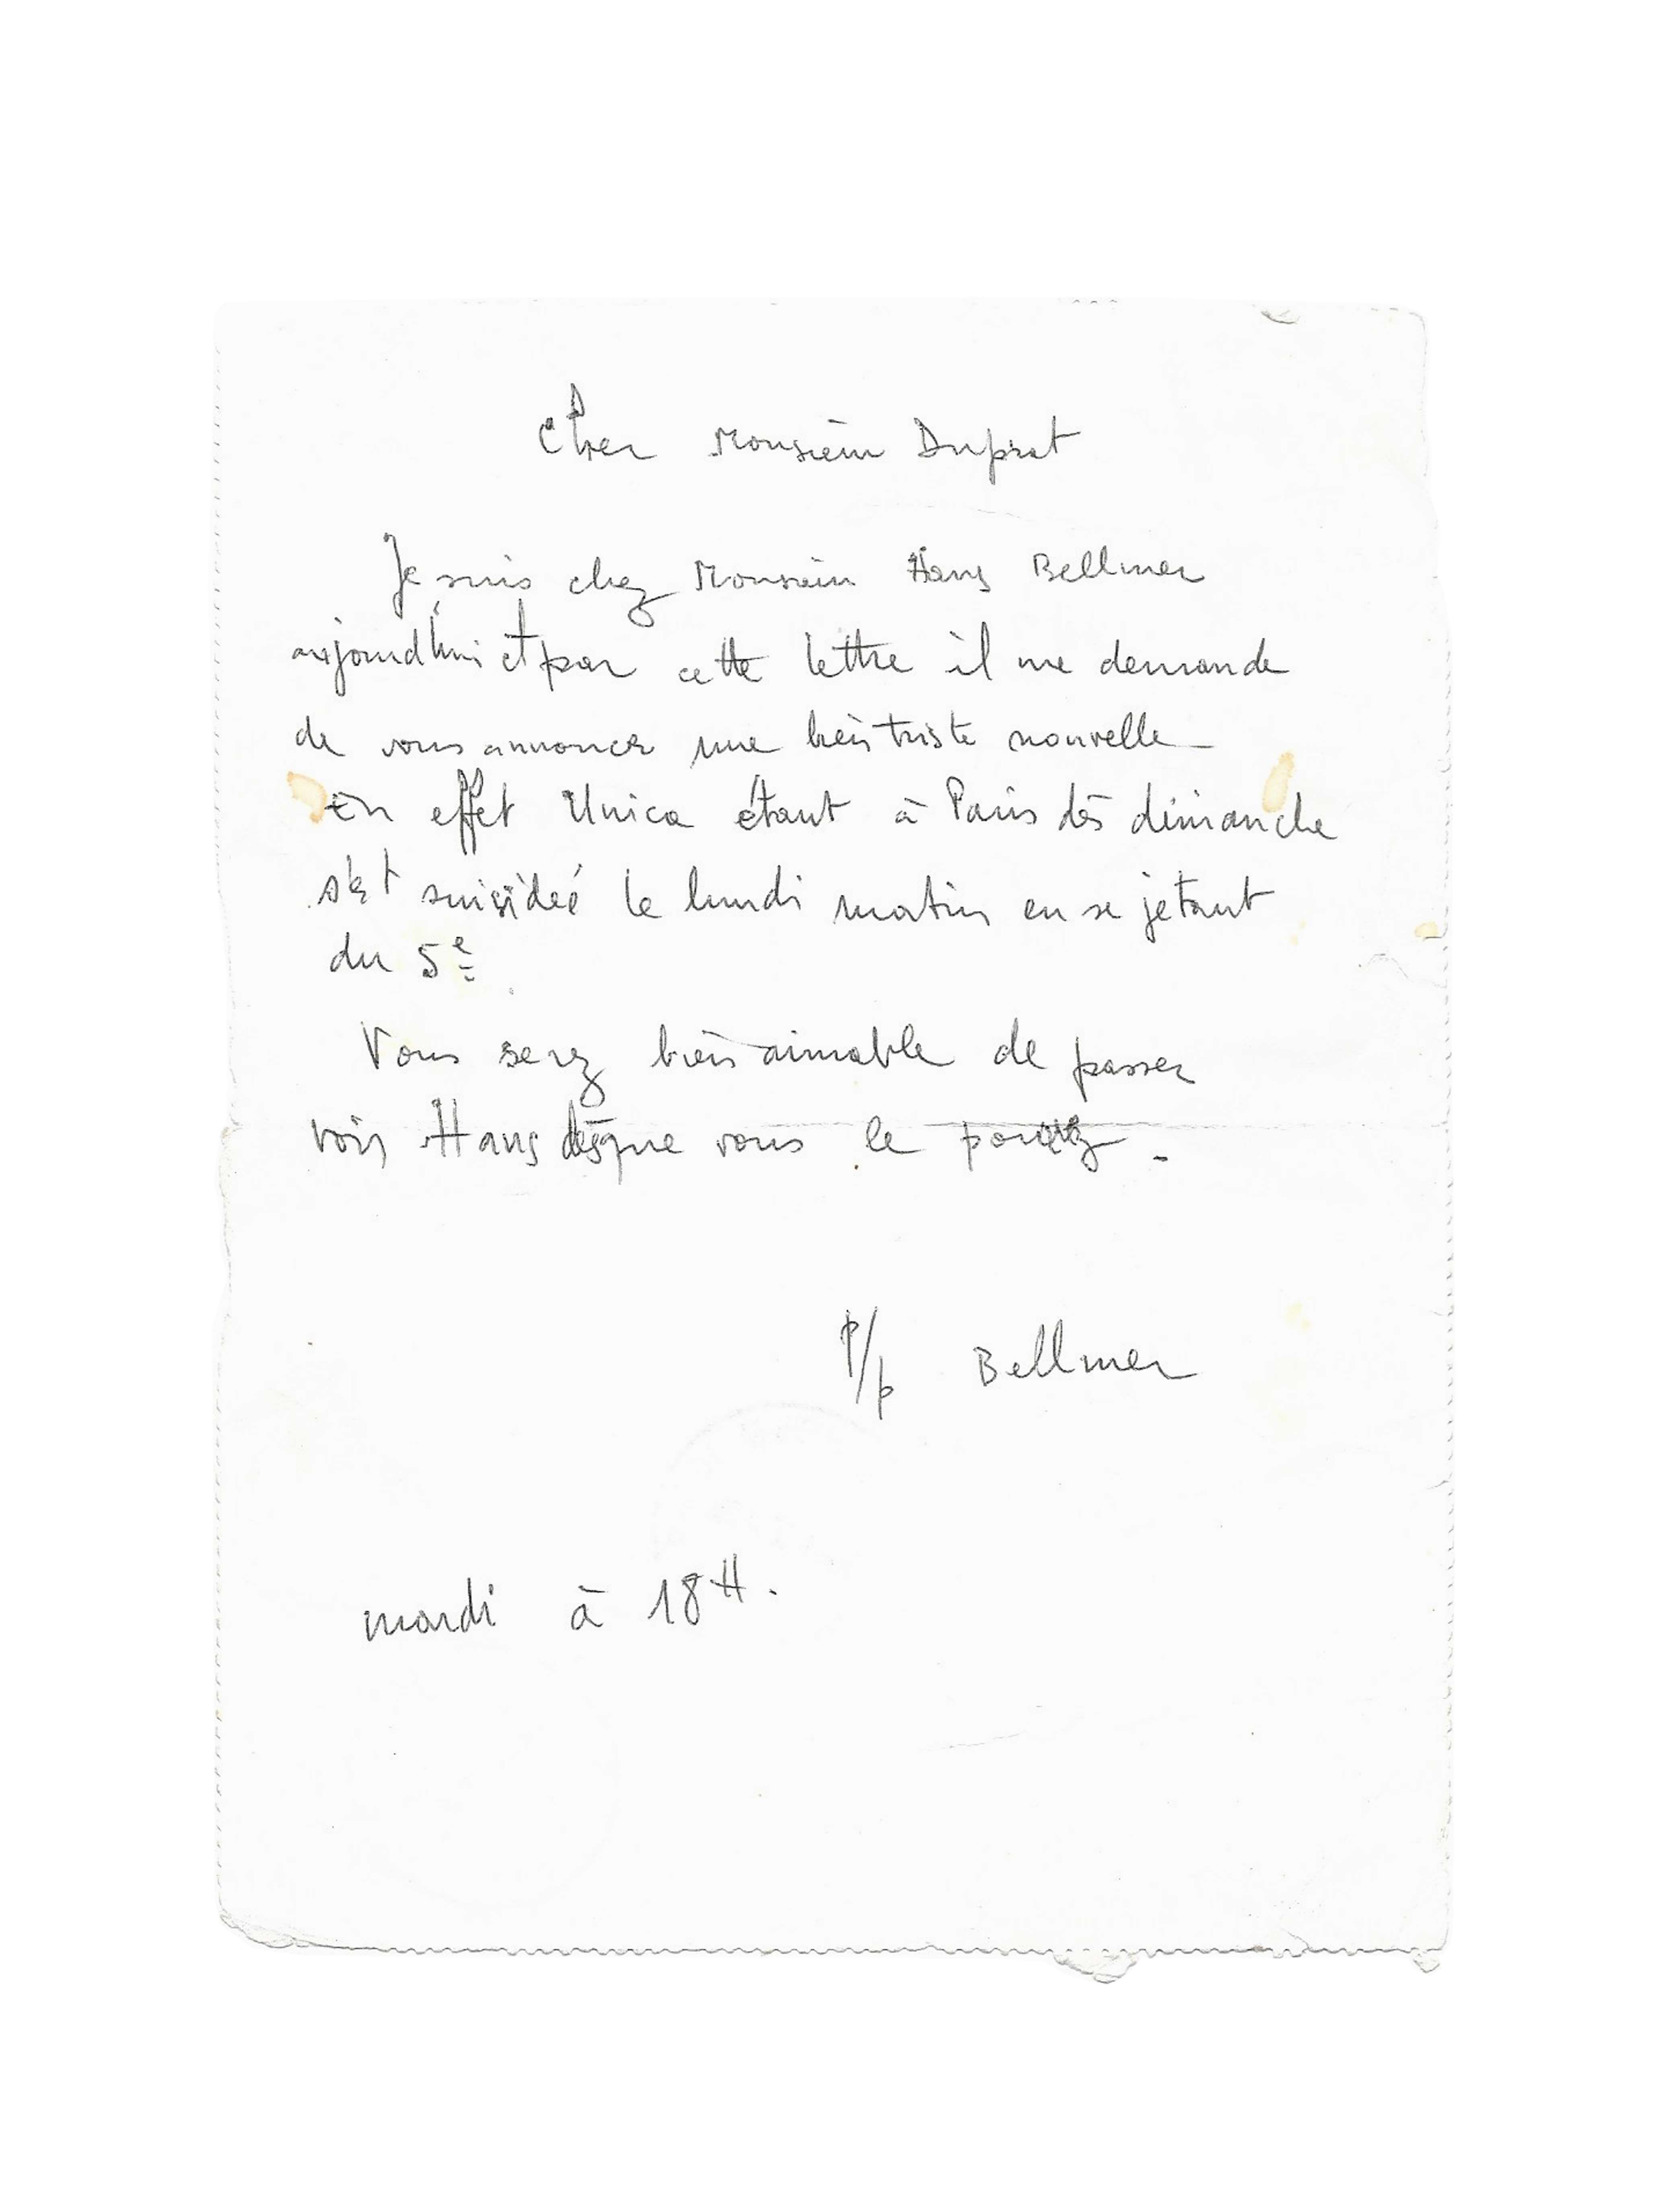 Cher Monsieur Duprat
Je suis chez Monsieur Hans Bellmer
aujourd'hui et par cette lettre il me demande
de vous annoncer une bien triste nouvelle
En effet Unica étant à Paris dès dimanche
s'est suicidée le lundi matin en se jetant
du 5e.
Vous serez bien aimable de passer
voir Hans dès que vous le pouvez.
p/p Bellmer
mardi à 18H.